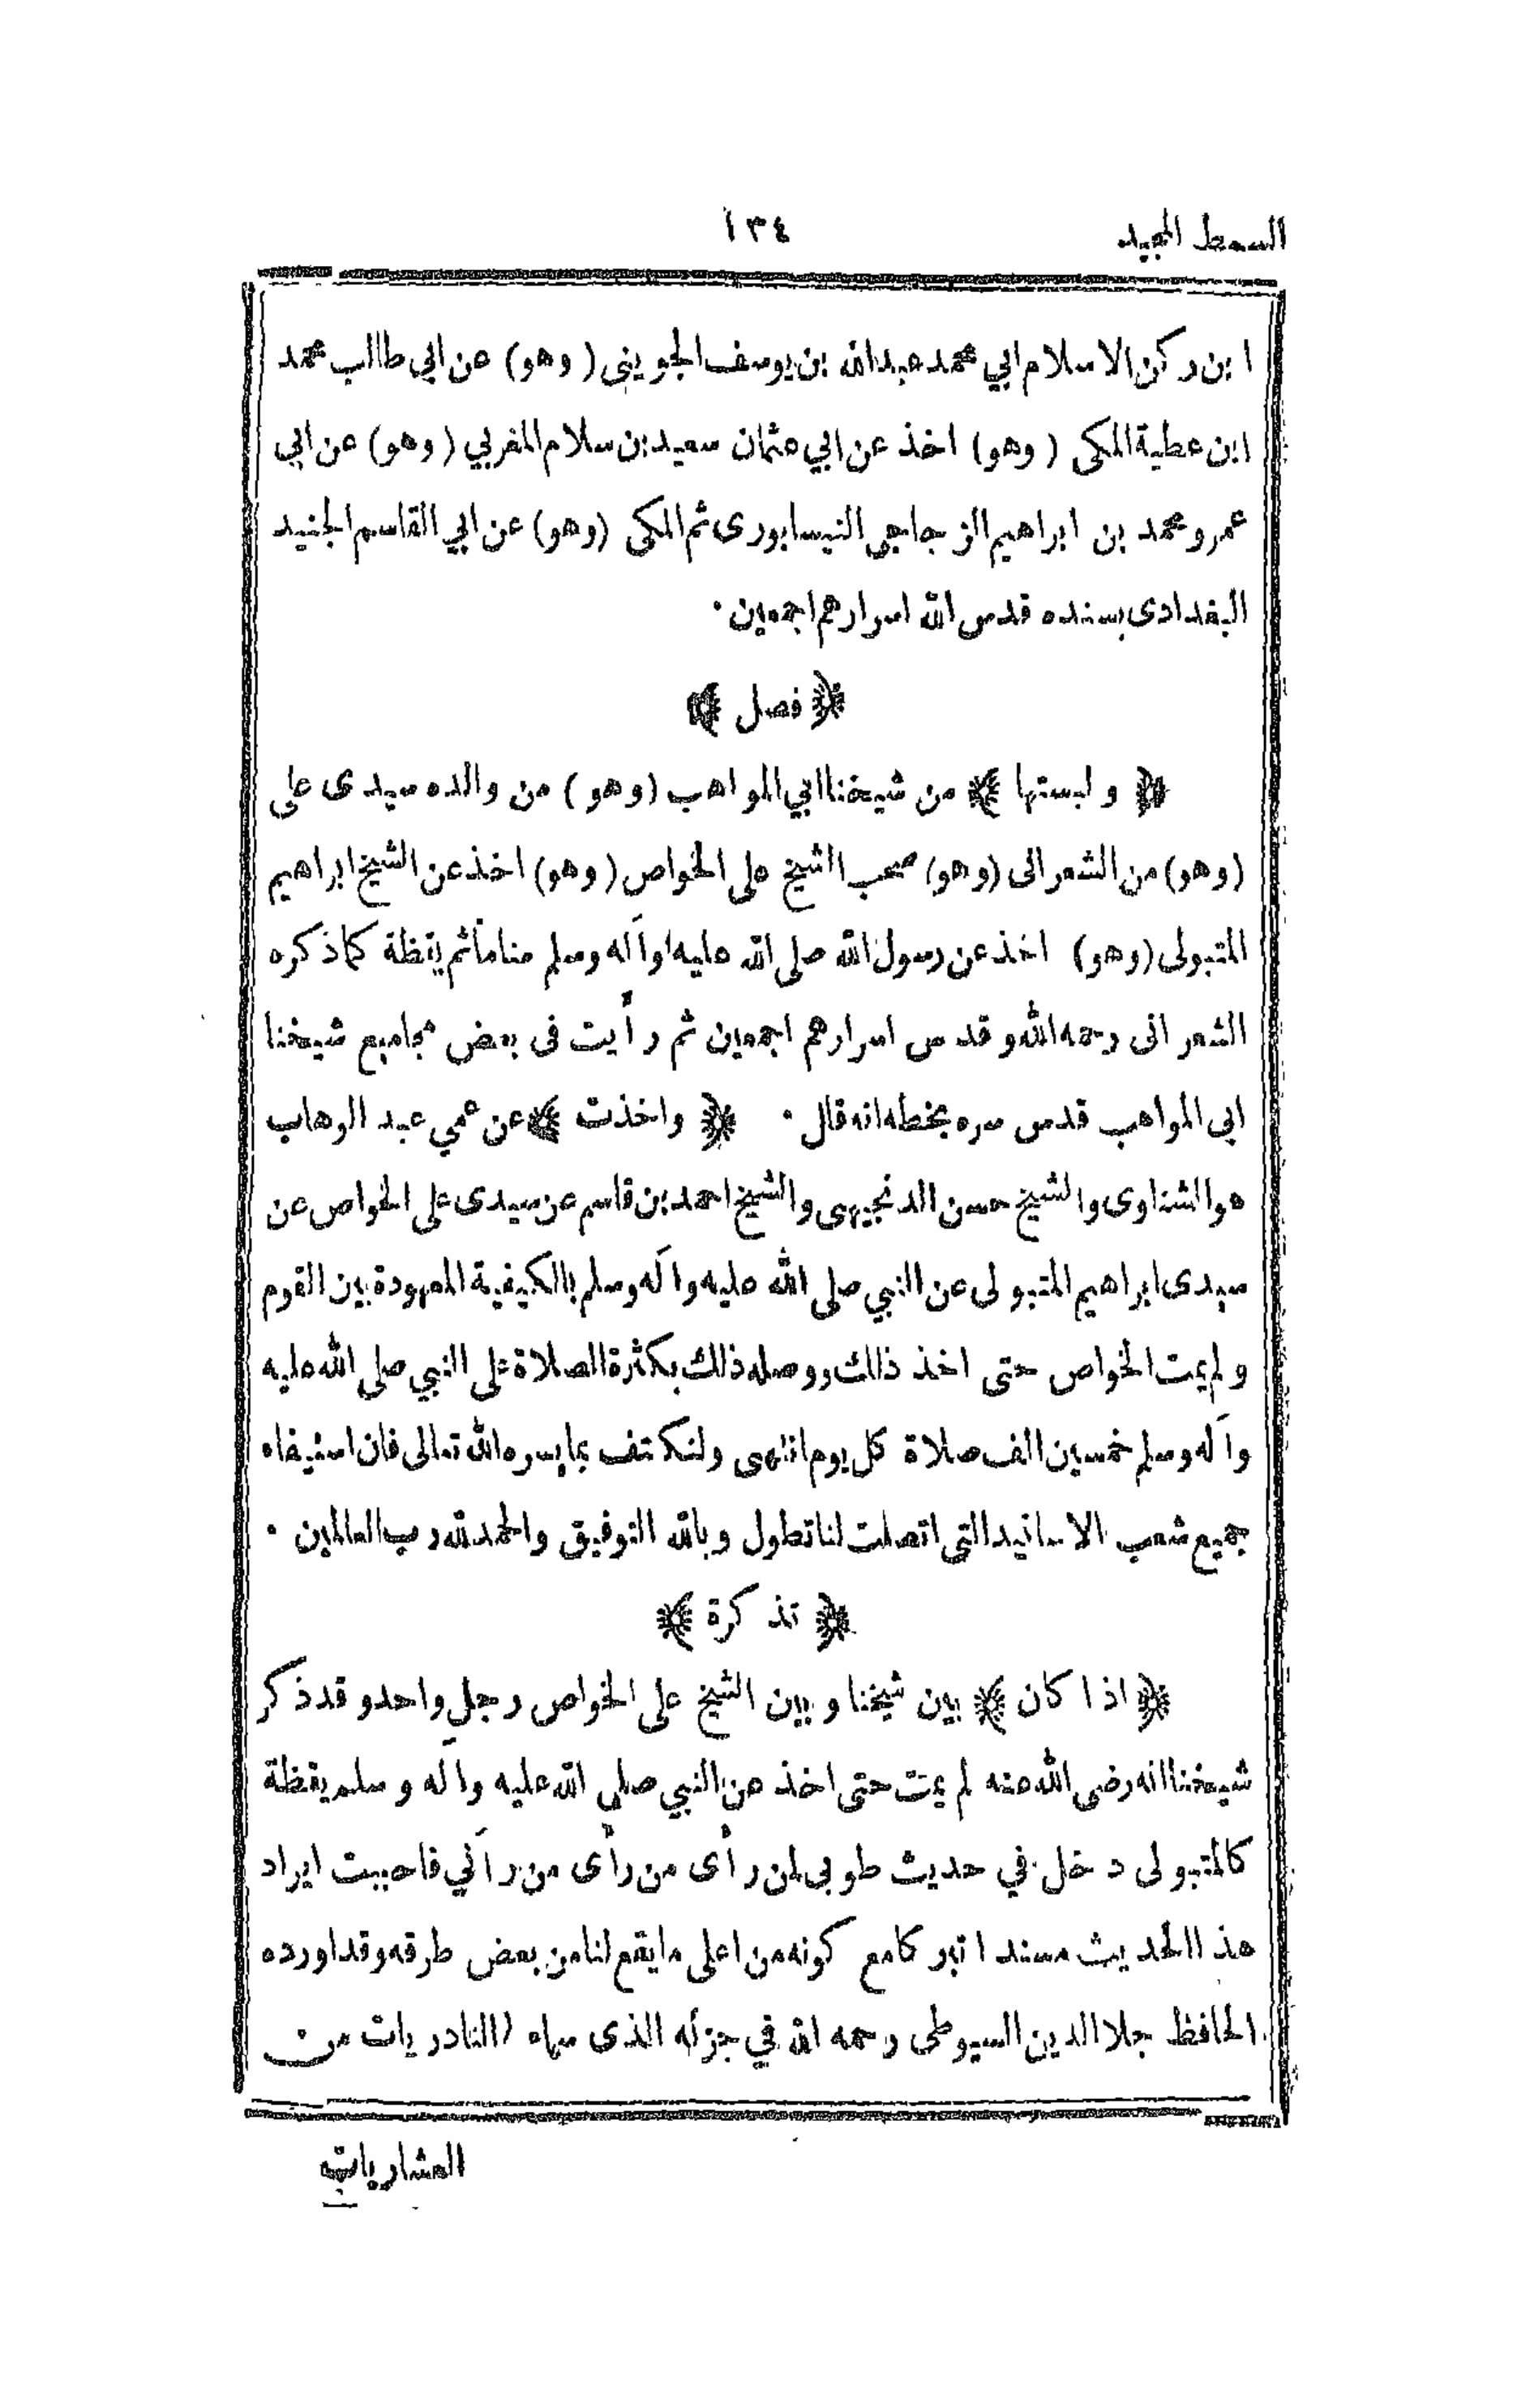 السمط المجيد ١٣٤
ابن ركن الاسلام ابي محمد عبدالله بن يوسف الجويني (وهو) عن ابي طالب محمد
ابن عطية المكى (وهو) اخذ عن ابي عثمان سعيد بن سلام المغربي (وهو) عن ابي
عمرو محمد بن ابراهيم الزجاجى النيسابورى ثم المكى (وهو) عن ابي القاسم الجنيد
البغدادى بسنده قدس الله اسرارهم اجمعين ٠
﴿ فصل ﴾
﴿ ولبستها ﴾ من شيخنا ابي المواهب (وهو) من والده سيدى على
(وهو) من الشعرانى (وهو) صحب الشيخ على الخواص (وهو) اخذ عن الشيخ ابراهيم
المتبولى (وهو) اخذ عن رسول الله صلى الله عليه وآله وسلم مناماً ثم يقظة كما ذكره
الشعرانى رحمه الله وقدس اسرارهم اجمعين ثم رأيت فى بعض مجاميع شيخنا
ابى المواهب قدس سره بخطه انه قال ٠ ﴿ واخذت ﴾ عن عمي عبد الوهاب
هو الشناوى والشيخ حسن الدنجيهى والشيخ احمد بن قاسم عن سيدى على الخواص عن
سيدى ابراهيم المتبولى عن النبي صلى الله عليه وآله وسلم بالكيفية المعهودة بين القوم
ولم يمت الخواص حتى اخذ ذالك ووصله ذلك بكثرة الصلاة على النبي صلى الله عليه
وآله وسلم خمسين الف صلاة كل يوم انتهى ولنكتف بما يسره الله تعالى فان استيفاء
جميع شعب الاسانيد التى اتصلت لنا تطول وبالله التوفيق والحمد لله رب العالمين ٠
﴿ تذكرة ﴾
﴿ اذا كان ﴾ بين شيخنا وبين الشيخ على الخواص رجل واحد وقد ذكر
شيخنا انه رضى الله عنه لم يمت حتى اخذ عن النبي صلى الله عليه وآله وسلم يقظة
كالمتبولى دخل في حديث طوبى لمن رأى من رأى من رآني فاحببت ايراد
هذا الحديث مسندا تبركا مع كونه من اعلى ما يقع لنا من بعض طرقه وقد اورده
الحافظ جلا الدين السيوطى رحمه الله في جزئه الذى سماه (النادريات من
العشاريات